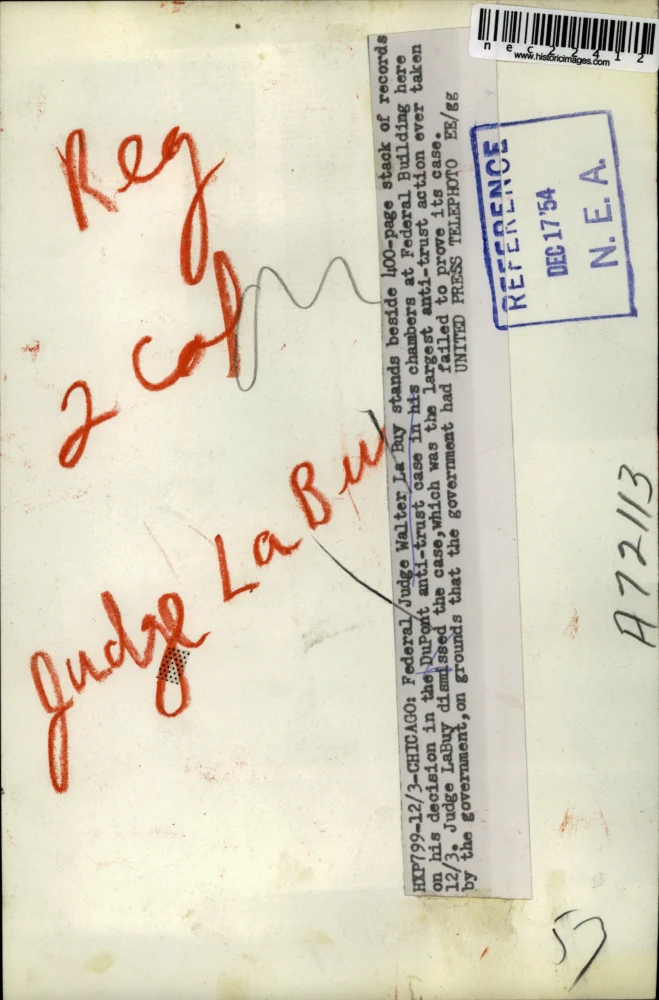 nec22412
www.historicimages.com
REFERENCE
DEC 17 '54
N. E. A.
Reg
2 Col
Judge LaBuy
HXP799-12/3-CHICAGO: Federal Judge Walter La Buy stands beside 400-page stack of records
on his decision in the DuPont anti-trust case in his chambers at Federal Building here
12/3. Judge LaBuy dismissed the case,which was the largest anti-trust action ever taken
by the government,on grounds that the government had failed to prove its case.
UNITED PRESS TELEPHOTO EE/gg
A72113